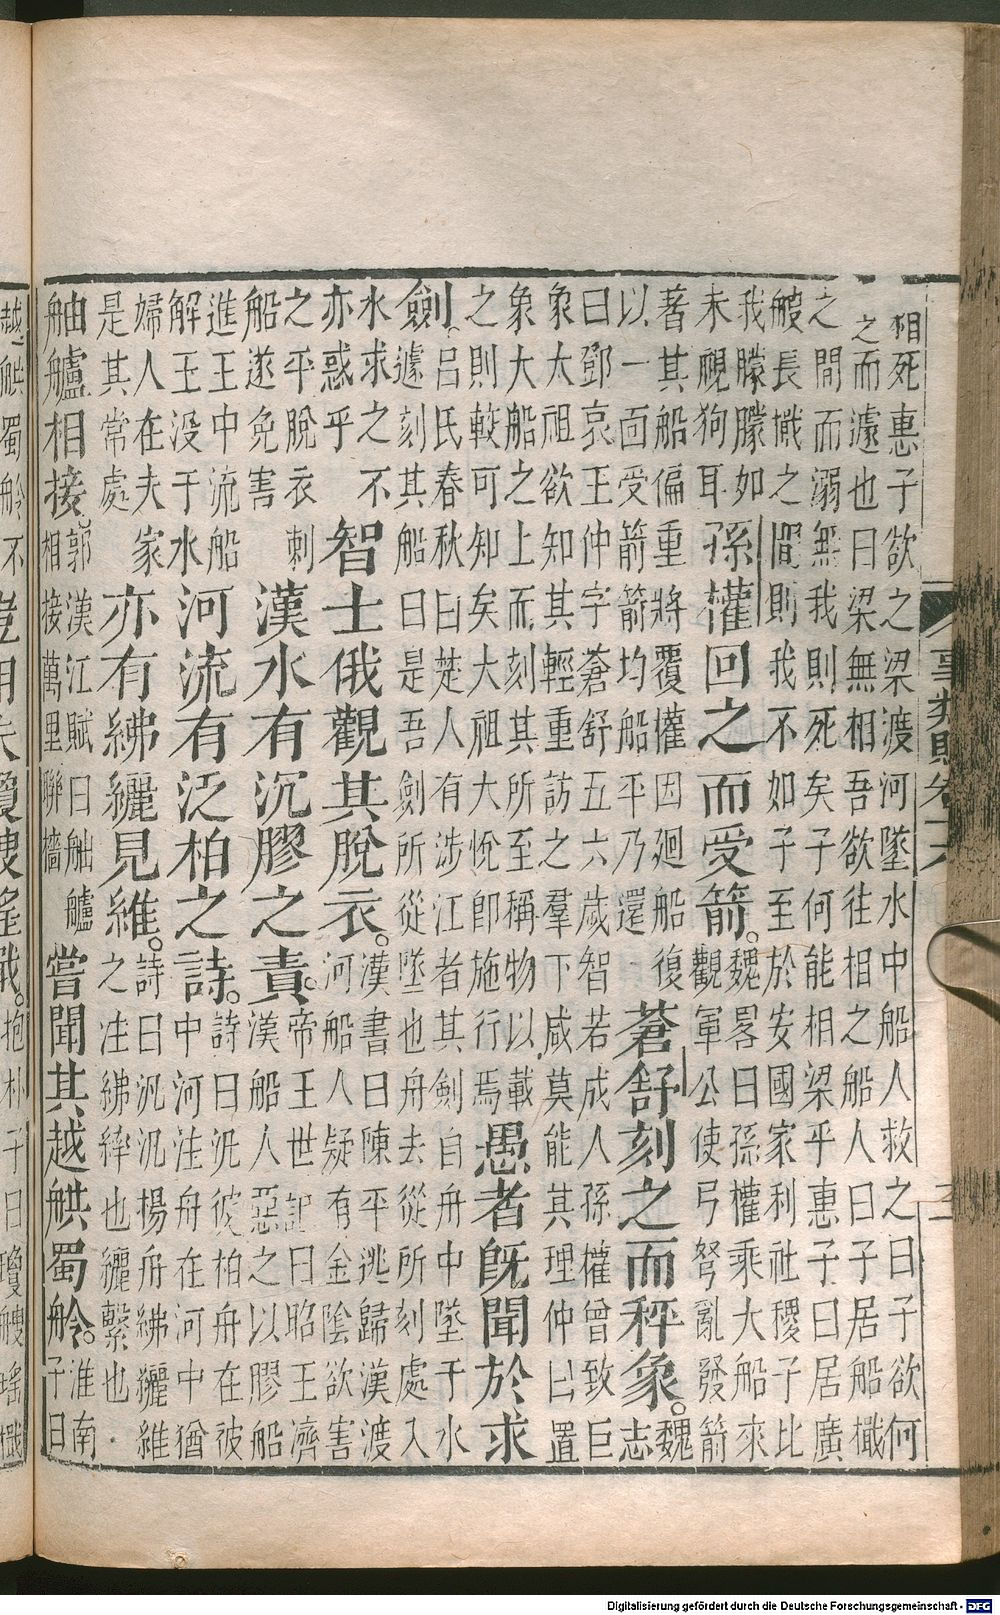 相死惠子欲之梁渡河墜水中船人救之曰子欲何
之而遽也曰梁無相吾欲往相之船人曰子居船檝
之間而溺無我則死矣子何能相梁乎惠子曰居廣
艘長檝之間則我不如子至於安國家利社稷子比
我朦朦如
未視狗耳
孫權回之而受箭。
魏畧曰孫權乘大船來
觀軍公使弓弩亂發箭
著其船偏重將覆權因廻船復
以一面受箭箭均船平乃還
蒼舒刻之而秤象。
魏
志
曰鄧哀王仲字蒼舒五六歲智若成人孫權曾致巨
象太祖欲知其輕重訪之羣下咸莫能其理仲曰置
象大船之上而刻其所至稱物以載
之則較可知矣大祖大悅即施行焉
愚者既聞於求
劍。
呂氏春秋曰楚人有涉江者其劍自舟中墜于水
遽刻其船曰是吾劍所從墜也舟去從所刻處入
水求之不
亦惑乎
智士俄觀其脫衣。
漢書曰陳平逃歸漢渡
河船人疑有金陰欲害
之平脫衣刺
船遂免害
漢水有沉膠之責。
帝王世記曰昭王濟
漢船人惡之以膠船
進王中流船
解王没于水
河流有泛柏之詩。
詩曰汎彼柏舟在彼
中河注舟在河中猶
婦人在夫家
是其常處
亦有紼纚見維。
詩曰汎汎楊舟紼纚維
之注紼繂也纚繫也
舳艫相接
郭漢江賦曰舳艫
相接萬里聯檣
嘗聞其越舼蜀舲。
淮南
子曰
事類賦卷十六
Digitalisierung gefördert durch die Deutsche Forschungsgemeinschaft - DFG